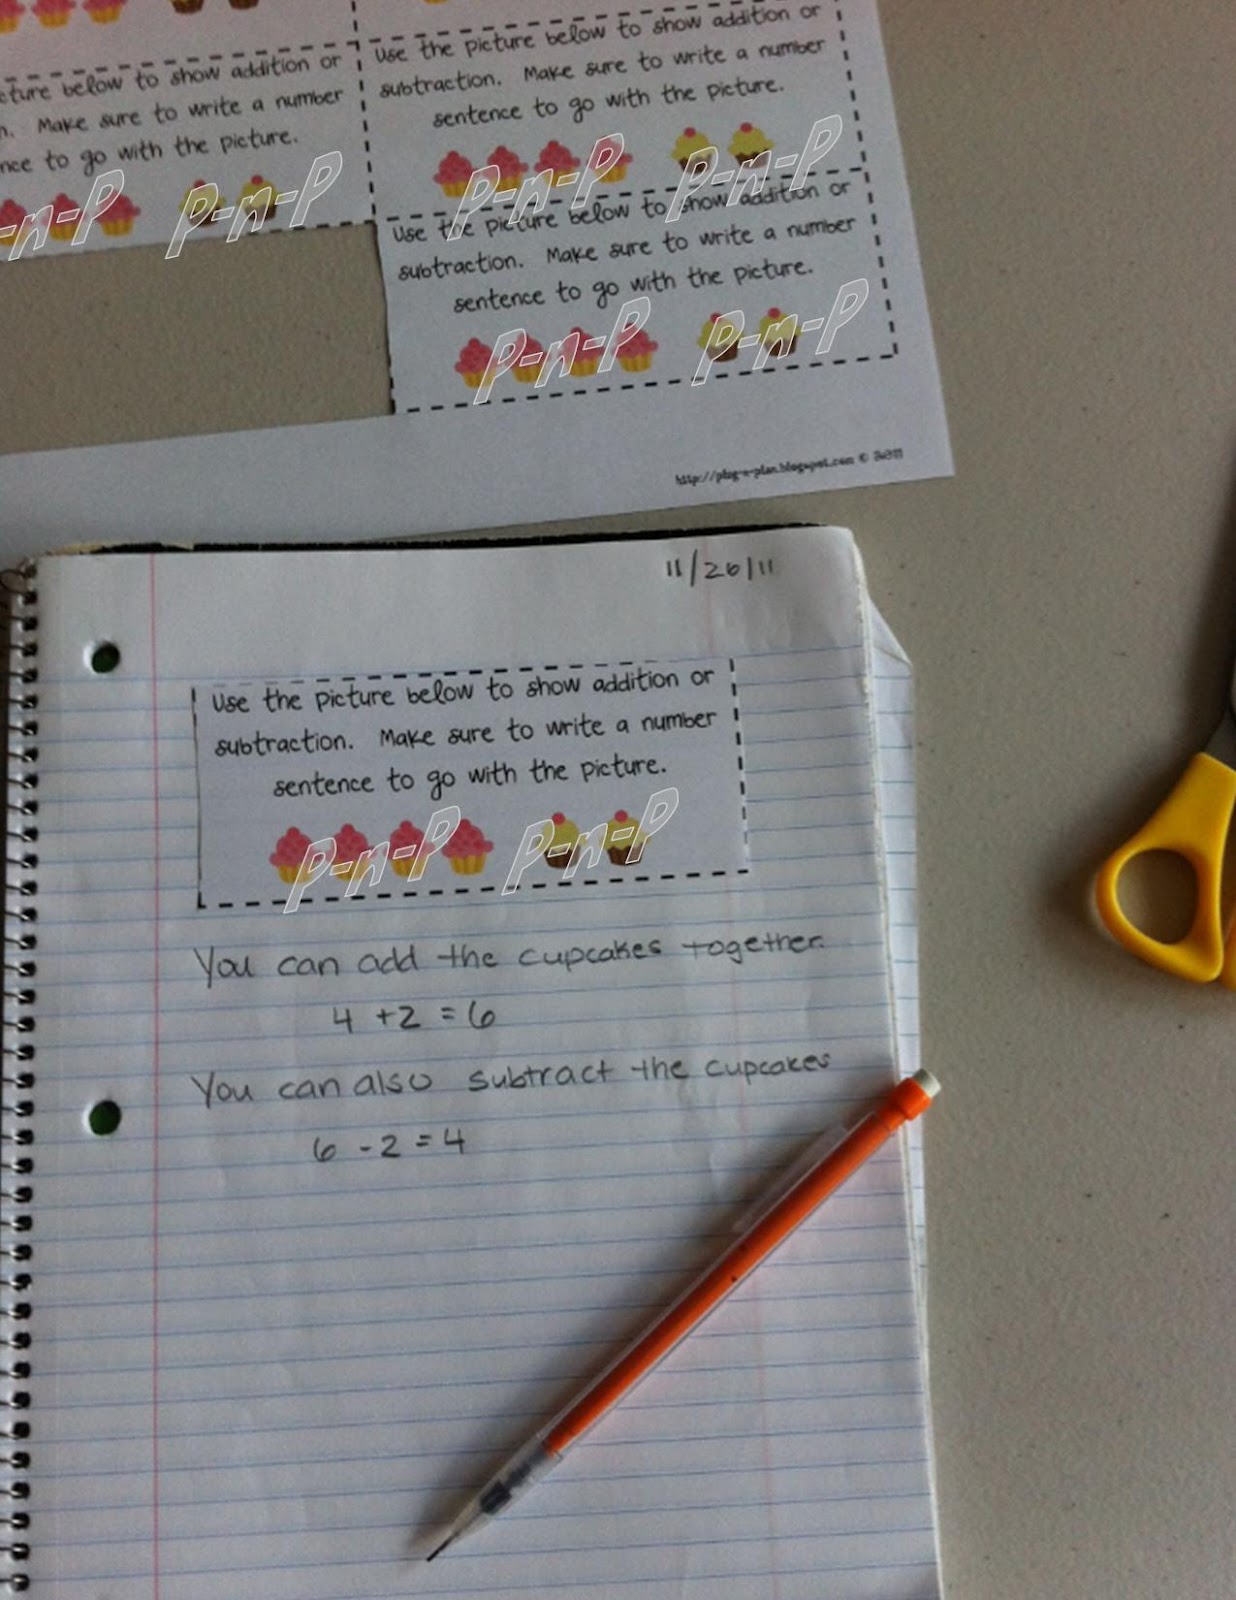 cture below to show addition or
n. Make sure to write a number
nce to go with the picture.
n-P P-n-P
Use the picture below to show addition or
subtraction. Make sure to write a number
sentence to go with the picture.
P-n-P P-n-P
Use the picture below to show addition or
subtraction. Make sure to write a number
sentence to go with the picture.
P-n-P P-n-P
http://plog-n-plan.blogspot.com © 2011
11/26/11
Use the picture below to show addition or
subtraction. Make sure to write a number
sentence to go with the picture.
P-n-P P-n-P
You can add the cupcakes together.
4 + 2 = 6
You can also subtract the cupcakes
6 - 2 = 4